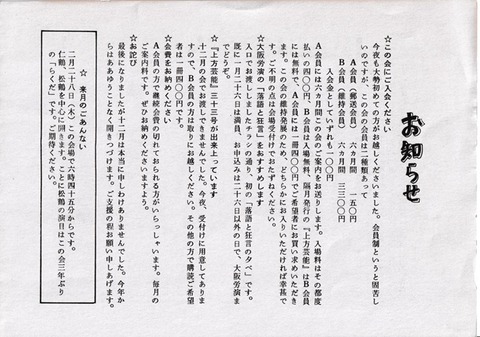 お知らせ
☆この会にご入会ください
今夜も大勢初めての方がお越しくださいました。会員制というと固苦し
いのですが、この会の会員は二種類あって
A会員（郵送会員） 六ヵ月間 一五〇円
B会員（維持会員） 六ヵ月間 三三〇〇円
入会金としていずれも一〇〇円
A会員には六ヵ月間この会のご案内をお送りします。入場料はその都度
払いの四〇〇円です。B会員は入場無料、隔月発行の『上方芸能』はB会員
には無料で、A会員は一冊四〇〇円でご希望者にお買い求めいただきま
す。この会の維持発展のため、どちらかにお入りいただければ幸甚で
す。ご不明の点は会場受付でおたずねください。
☆大阪労演の「落語と狂言」をおすすめします
入口でお渡ししましたチラシの通り、初の「落語と狂言の夕べ」です。
既に一月二十六日は満員、お申込みは二十六日以外の日で、大阪労演ま
でどうぞ。
☆『上方芸能』三十三号が出来上っています
十二月の会でお渡しできませんでした。今夜、受付けに用意してありま
すので、B会員の方は取りにお越しください。その他の方で購読ご希望
者は一冊四〇〇円です。
☆会費をお納めください
A会員の方で継続会費の切れておられる方がいらっしゃいます。毎月の
ご案内料です。ぜひお納めくださいますよう。
☆お詫び
最後になりましたが十二月は本当に申しわけありませんでした。今年か
らはああゆうことなく開きつづけます。ご支援の程お願い申しあげます。
☆ 来月のごあんない
二月二十八日（木）この会場で六時四十五分からです。
仁鶴、松鶴を中心に開きます。ことに松鶴の演目はこの会三年ぶり
の「らくだ」です。ご期待ください。